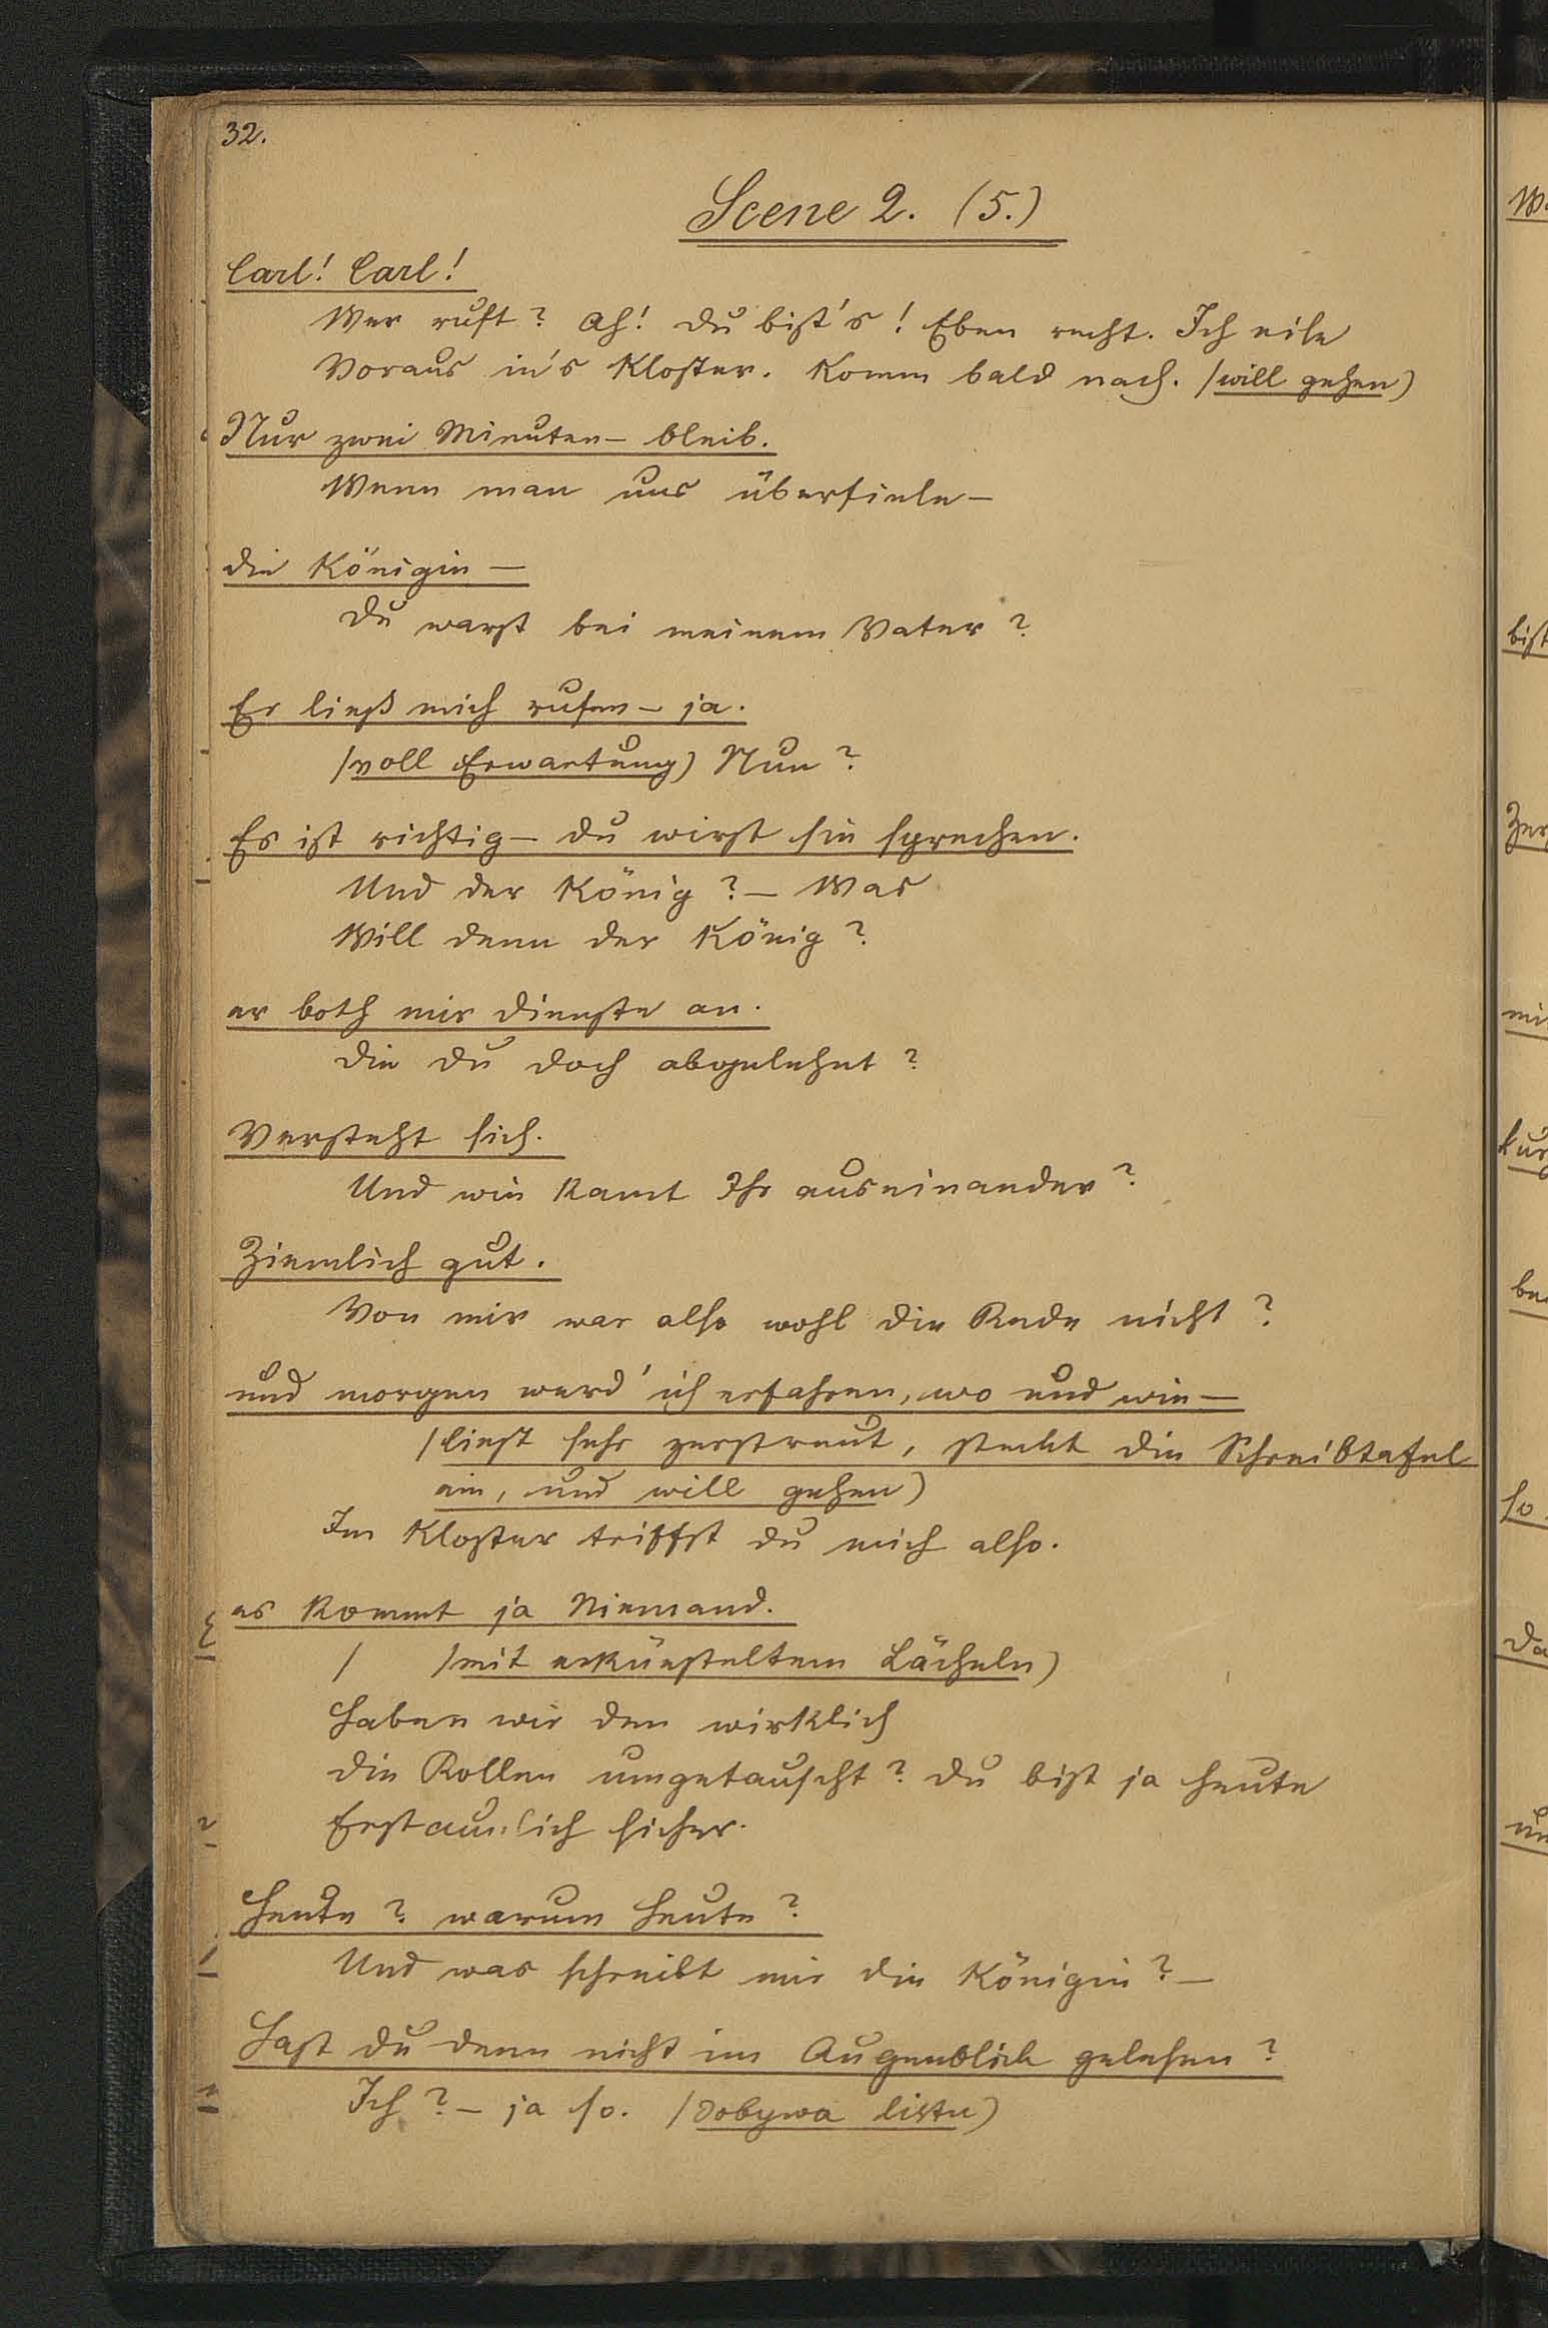 32.
Scene 2. (5.)
Carl! Carl!
Wer ruft? Ah! Du bist's! Eben recht. Ich eile
Voraus in's Kloster. Komm bald nach. (will gehen)
Nur zwei Minuten – bleib.
Wenn man uns überfiele –
die Königin –
Du warst bei meinem Vater?
Er ließ mich rufen – ja.
(voll Erwartung) Nun?
Es ist richtig – du wirst sie sprechen.
Und der König? – Was
Will denn der König?
er both mir Dienste an.
Die du doch abgelehnt?
Versteht sich.
Und wie kamt Ihr auseinander?
Ziemlich gut.
Von mir war also wohl die Rede nicht?
und morgen werd' ich erfahren, wo und wie –
(liest sehr zerstreut, steckt die Schreibtafel
ein, und will gehen)
Im Kloster triffst du mich also.
es kommt ja Niemand.
/ (mit erkünsteltem Lächeln)
Haben wir den wirklich
die Rollen umgetauscht? du bist ja heute
Erstaunlich sicher.
Heute? warum heute?
Und was schreibt mir die Königin? –
Hast du denn nicht im Augenblick gelesen?
Ich? – ja so. (dobywa listu)
bist
mi
so